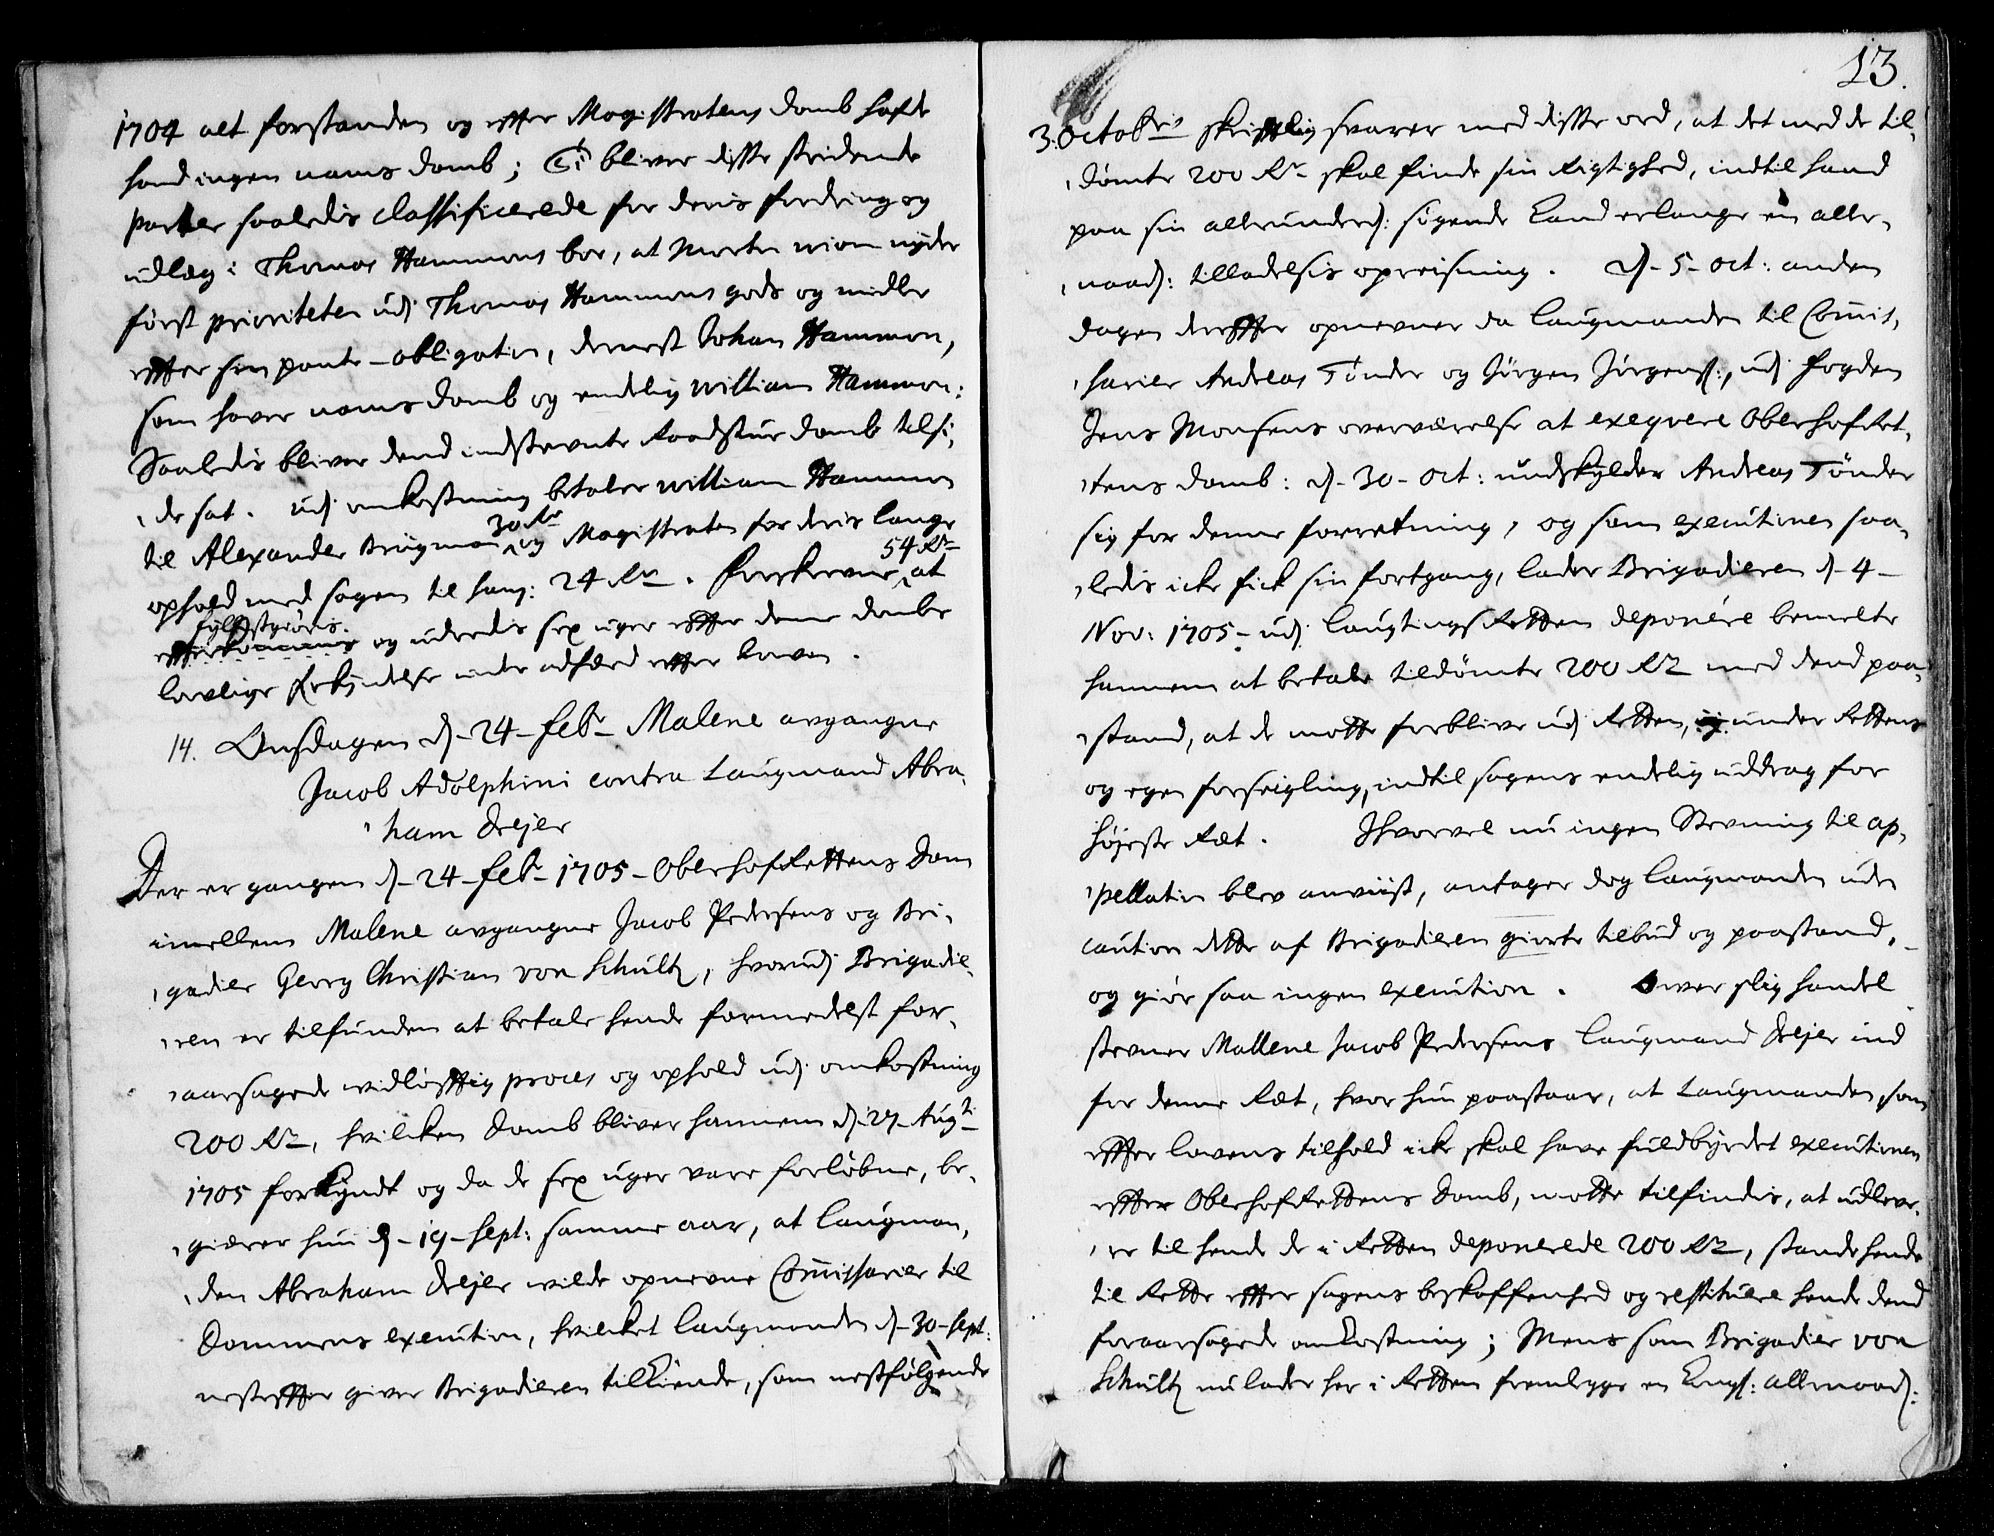 1704 alt forstanden og effter Magistratens domb hafde
hand ingen nams domb; Ti bliver disse stridende
parter saaledis classificerede for deris fordring og
udlæg i Thomas Hammons boe, at Morten wiom nyder
først prioriteten udj Thomas Hammons gods og midler
effter sin pante-obligation, dernest Johan Hammon,
som haver nams domb og endelig william Hammon:
Saaledis bliver dend indstevnte Raadstue domb tilsi,
,de sat. udj omkostning betaler william Hammon
til Alexander Brügman 30 Rdr og Magistraten for deris lange
ophold med sagen til hans: 24 Rdr. foreskrevne 54 Rdr at
fyldistgiøris
effterkommis og uderedis sex uger effter denne dombs
lovlige forkyndelse under adfærd effter loven.
14. Onsdagen d. 24 febr. Malene avgangne
Jacob Adolphini contra Laugmand Abra,
,ham Drejer
Der er gangen d. 24 febr. 1705 Oberhofrettens Dom
imellem Malene avgangne Jacob Pedersens og Bri,
,gadier Georg Christian von Schultz, hvorudj Brigadie,
,ren er tilfunden at betale hende formedelst for,
,aarsagede widløfftig proces og ophold udj omkostning
200 Rdr, hvilcken Domb bliver hannem d. 27 Augti
1705 forkyndt og da de sex uger vare forløbne, be,
,giærer hun d. 19 Sept: samme aar, at Laugman,
,den Abraham Drejer wilde opnevne Commissarier til
Dommens execution, hvilcket Laugmanden d. 30 Sept:
nesteffter giver Brigadieren tilkiende, som nestfølgende
13.
3. Octobris skrifftlig svarer med disse ord, at det med de til,
,dømte 200 Rdr skal finde sin Rigtighed, indtil hand
paa sin allerunderd: søgende kand erlange en aller,
,naad: tilladelsis opreisning. d. 5 oct: anden
dagen dereffter opnevner da Laugmanden til Commis,
,sarier Andreas Tønder og Jørgen Jørgens:, udj fogden
Jens Monsens overværelse at exeqvere Oberhofret,
,tens domb: d. 30 oct: undskylder Andreas Tønder
sig for denne forretning, og som executionen saa,
,ledis icke fick sin fortgang, lader Brigadieren d. 4
Nov: 1705 udj Laugtings Retten deponére bemelte
hannem at betale tildømte 200 Rdr med dend paa,
,stand, at de motte forblive udj Retten, under Rettens
og egen forseigling, indtil sagens endelig uddrag for
højeste Ræt. Ihvorvel nu ingen Stevning til ap,
,pellation blev anviist, antager dog Laugmanden uden
caution dette af Brigadieren giorte tilbud og paastand,
og giør saa ingen execution. Over slig handel
stevner Mallene Jacob Pedersens Laugmand Drejer ind
for denne Ræt, hvor hun paastaar, at Laugmanden, som
effter lovens tilhold icke skal have fuldbyrdet executionen
effter Oberhofrettens Domb, motte tilfindis, at udleve,
,re til hende de i Retten deponerede 200 Rdr, stande hende
til Rette effter sagens beskaffenhed og restituere hende dend
foraarsagede omkostning; Mens som Brigadier von
Schultz nu lader her i Retten fremlegge en Kongs: allernaad: